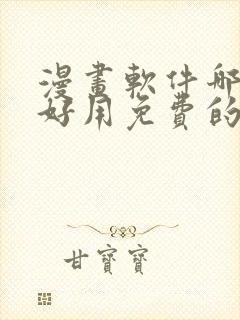 漫畫軟件哪
好用免費的
甘寶寶